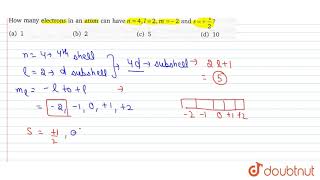 How many electrons in an atom can have n = 4, l = 2, m = - 2 and s = + 1/2 ?
(a) 1 (b) 2 (c) 5 (d) 10
n = 4 → 4th shell
l = 2 → d subshell } → 4d → subshell → 2l+1
5
mℓ = -l to +l
= -2, -1, 0, +1, +2
-2 -1 0 +1 +2
S = +1/2 ,
doubtnut